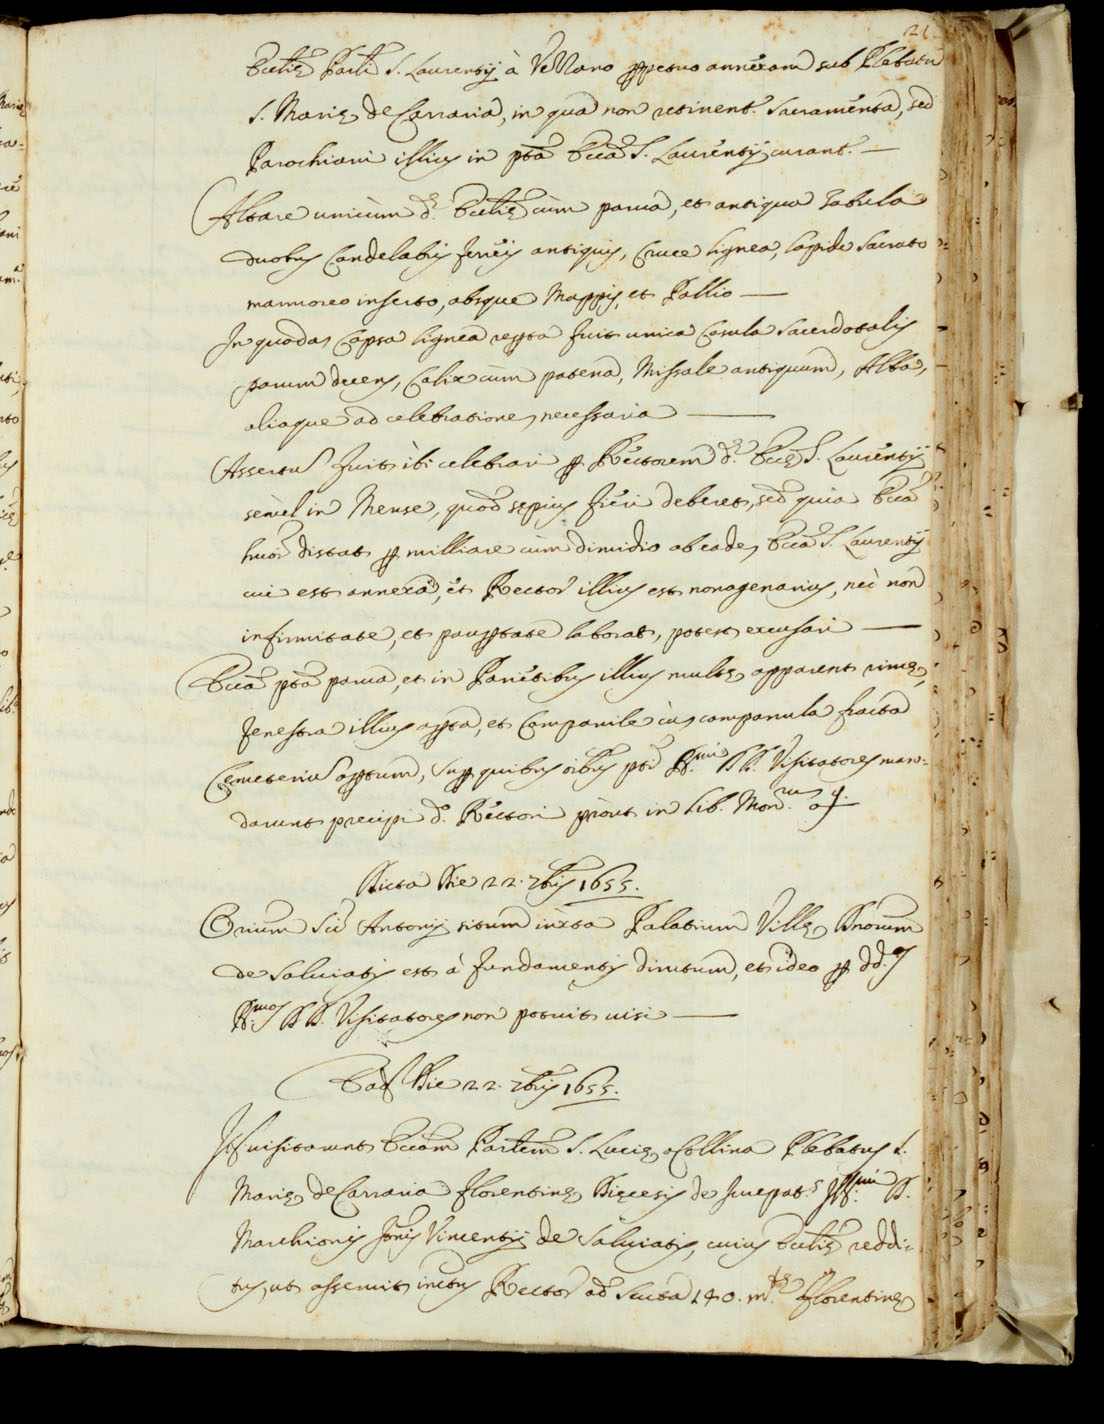 21
Ecclię Parli S. Laurentij à Vezzano ppetuo annexam sub Plebatu
S. Marię de Carraria, in qua non retinent.r Sacramenta, sed
Parochiani illius in pta Eccã S. Laurentij curant.r —
Altare unicum d.ę Ecclię cùm parua, et antiqua Tabula
duobus Candelabris ferreis antiquis, Cruce lignea, lapide Sacrato
marmoreo inserto, absque Mappis, et Pallio —
In quadã Capsa lignea repta fuit unica Casula Sacerdotalis
parum decens, Calix cùm patena, Missale antiquum, Alba,
aliaque ad celebrationẽ necessaria —
Assertũ fuit ibi celebrari p Rectorem d.ę Eccę S. Laurentij
semel in Mense, quod sępius fieri deberet, sed quia Ecca
huõi distat p milliare cùm dimidio ab eadẽ Ecca S. Laurentij
cui est annexa, et Rector illius est nonagenarius, nec non
infirmitate, et pauptate laborat, potest excusari —
Ecca pta parua, et in Parietibus illius multę apparent rimę,
fenestra illius apta, et Campanile cũ campanula fracta
Cemeteriũ aptum, Sup quibus oibus pti R.mi DD. Visitatores man-
darunt precipi d.o Rectori prout in lib. Mon.rum
Dicta Die 22. 7bris 1655.
Orium Sti Antonij situm iuxta Palatium Villę Dnorum
de Saluiatis est à fundamentis dirutum, et ideo p dd.os
R.mos DD. Visitatores non potuit uisi —
Eadẽ Die 22. 7bris 1655.
Itẽ uisitarunt Eccam Parlem S. Lucię a Collina Plebatus S.
Marię de Carraria florentinę Dięcesis de Iurepat.s Ill.mi D.
Marchionis Jonis Vincentij de Saluiatis, cuius Ecclię reddi-
tus, ut asseruit illius Rector ad Scuta 140. m.tę florentinę